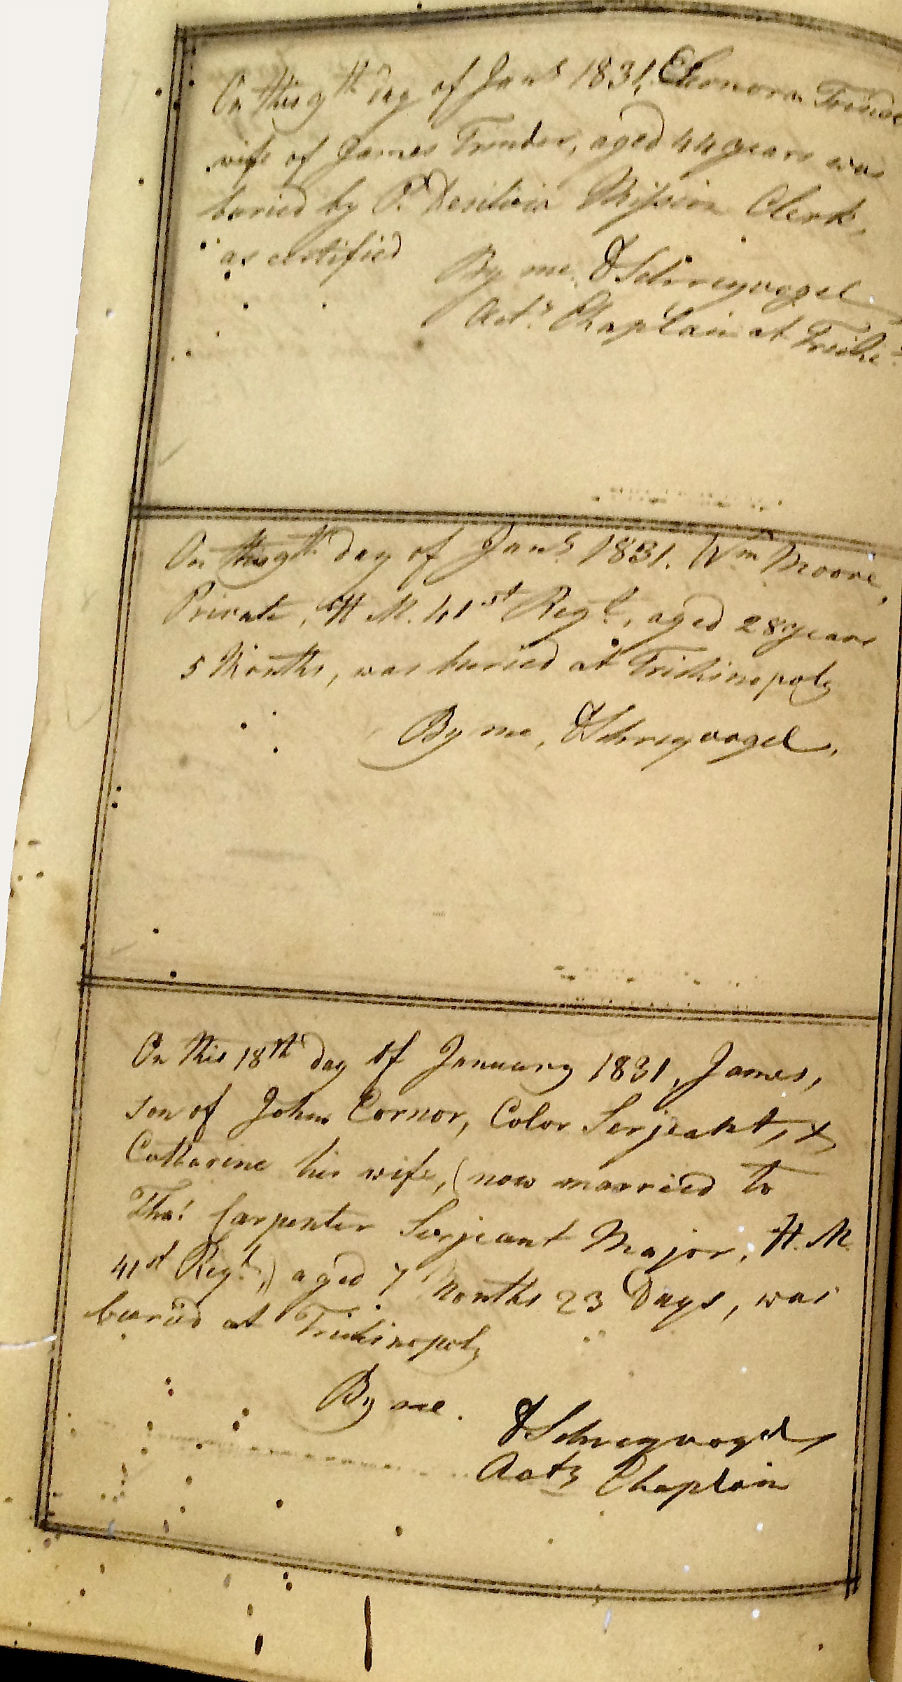 On this 9th day of Jany 1831, Eleonora
wife of James Trinder, aged 44 years was
buried by P. Desilvia Mission Clerk,
as certified By me, D Schreyvogel
Actg Chaplain at Trichi
On this 9th day of Jany 1831. Wm Moore,
Private, H. M. 41st Regt, aged 28 years
5 Months, was buried at Trichinopoly
By me, D Schreyvogel.
On this 18th day of January 1831, James,
son of John Cornor, Color Serjeant, &
Catharine his wife, (now married to
Thos Carpenter Serjeant Major, H. M.
41st Regt,) aged 7 Months 23 Days, was
buried at Trichinopoly
By me. D Schreyvogel,
Actg Chaplain